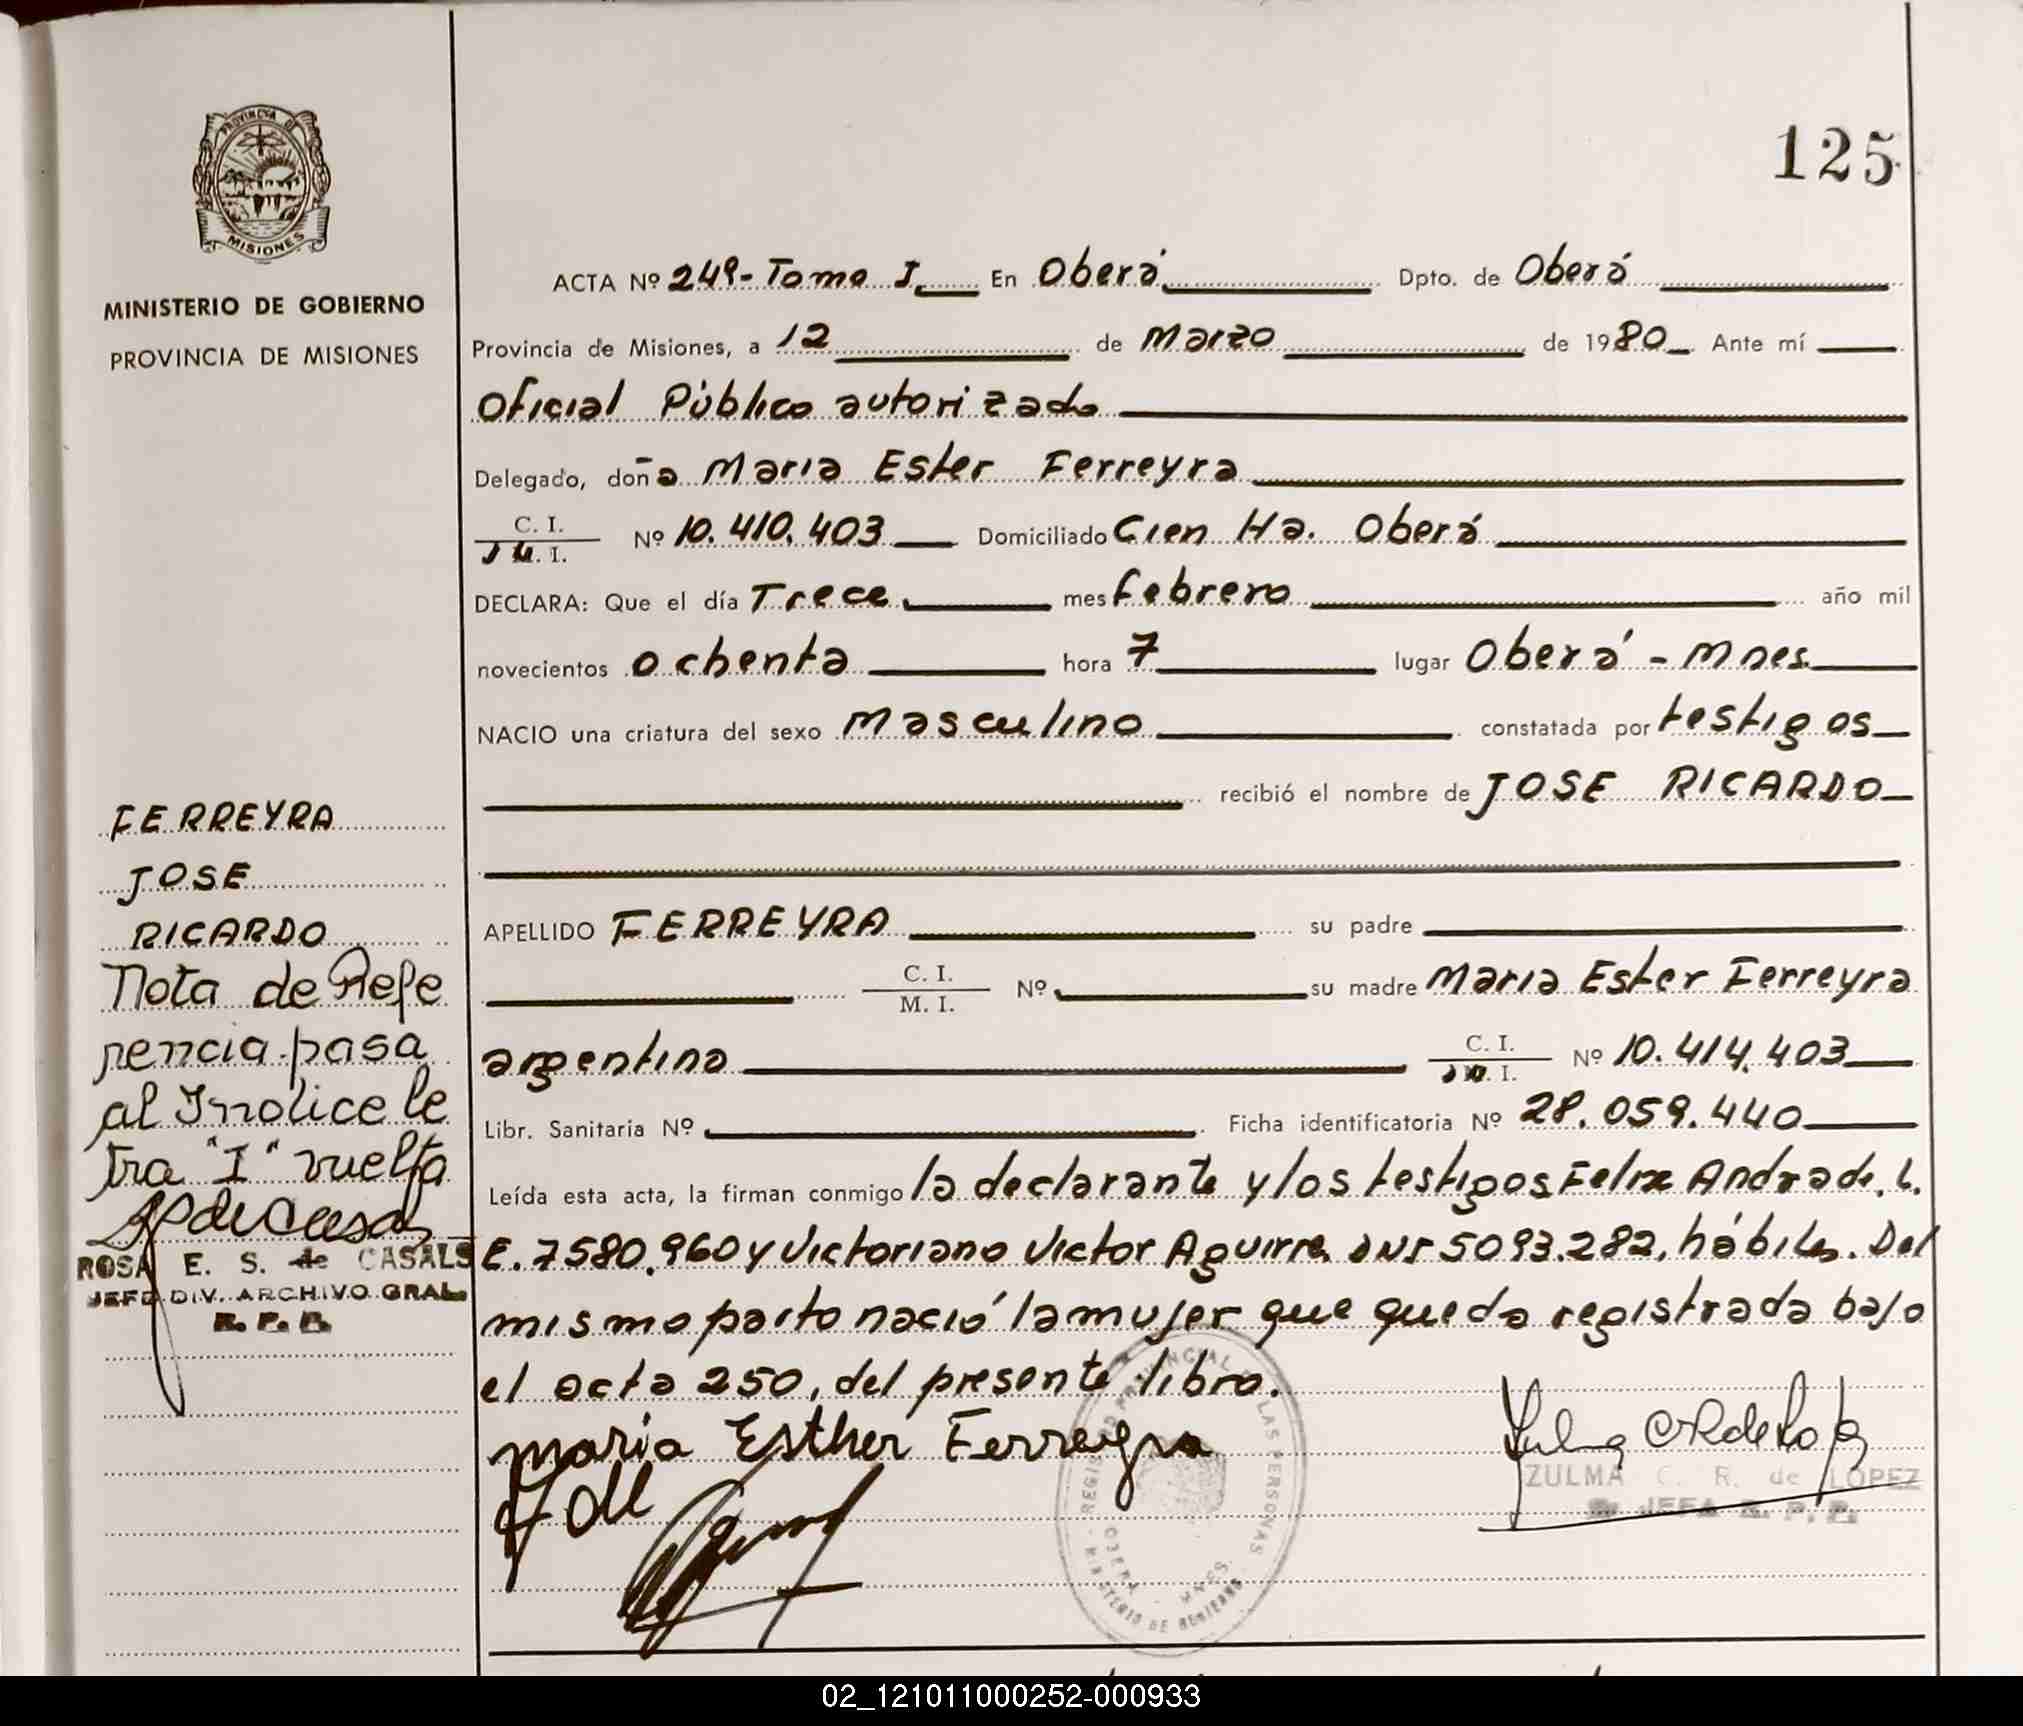 125
PROVINCIA DE
MISIONES
MINISTERIO DE GOBIERNO
PROVINCIA DE MISIONES
ACTA Nº 249 - Tomo I En Oberá Dpto. de Oberá
Provincia de Misiones, a 12 de Marzo de 1980 Ante mí
Oficial Público autorizado
Delegado, doña Maria Ester Ferreyra
C. I.
M. I. Nº 10.410.403 Domiciliado Cien Ha. Oberá
DECLARA: Que el día Trece mes febrero año mil
novecientos ochenta hora 7 lugar Oberá - Mnes.
NACIO una criatura del sexo Masculino constatada por testigos
recibió el nombre de JOSE RICARDO
APELLIDO FERREYRA su padre
C. I.
M. I. Nº su madre Maria Ester Ferreyra
argentina C. I.
M. I. Nº 10.414.403
Libr. Sanitaria Nº Ficha identificatoria Nº 28.059.440
Leída esta acta, la firman conmigo la declarante y los testigos Felix Andrade, L.
E. 7580.960 y Victoriano Victor Aguirre DNI 5093.282, hábiles. Del
mismo parto nació la mujer que queda registrada bajo
el acta 250, del presente libro.
Maria Esther Ferreyra
ZULMA C. R. de LOPEZ
JEFA R. P. P.
REGISTRO PROVINCIAL DE LAS PERSONAS
OBERA MNES.
MINISTERIO DE GOBIERNO
FERREYRA
JOSE
RICARDO
Nota de Refe
rencia pasa
al Indice le
tra "I" vuelta
ROSA E. S. de CASALS
JEFE DIV. ARCHIVO GRAL.
R. P. P.
02_121011000252-000933